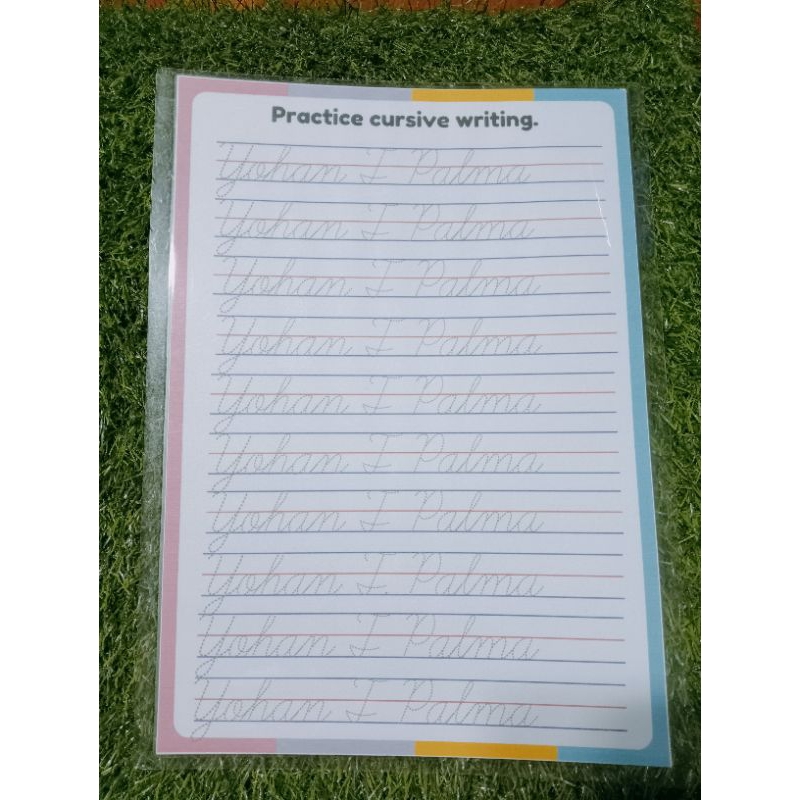 Practice cursive writing.
Yohan I Palma
Yohan I Palma
Yohan I Palma
Yohan I Palma
Yohan I Palma
Yohan I Palma
Yohan I Palma
Yohan I Palma
Yohan I Palma
Yohan I Palma